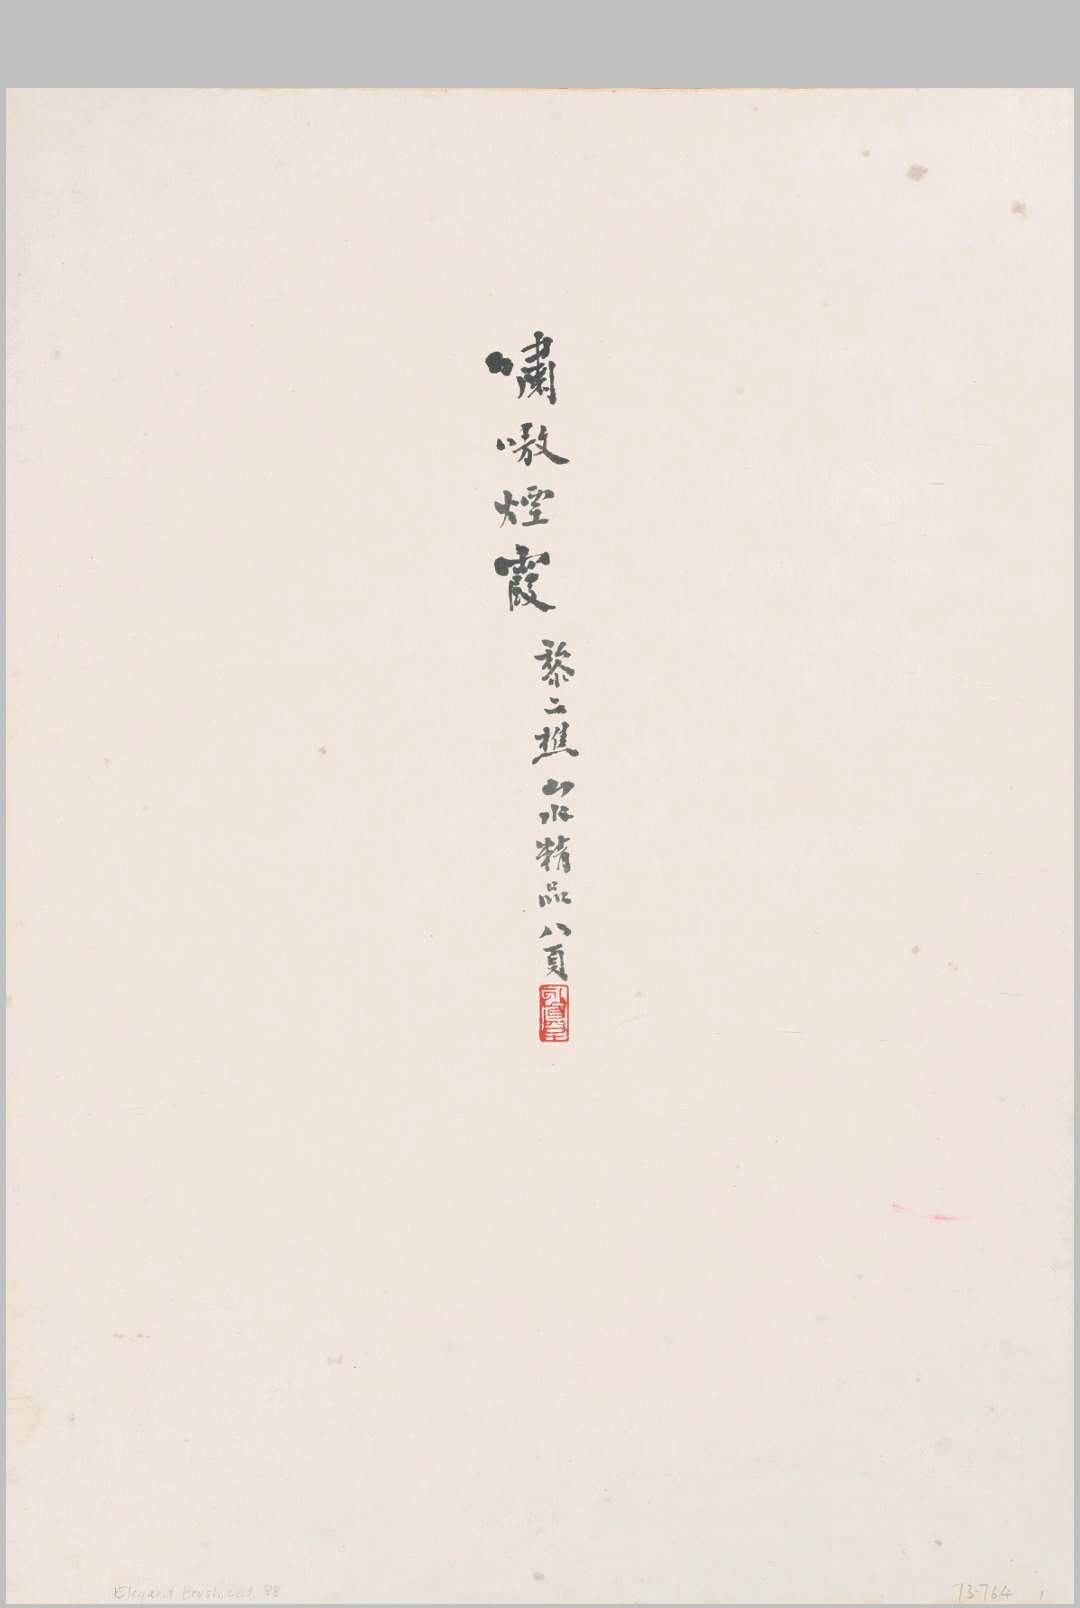 嘯嗷煙霞
黎二樵山水精品八頁
Elegant Brush, cat. 83
73.764